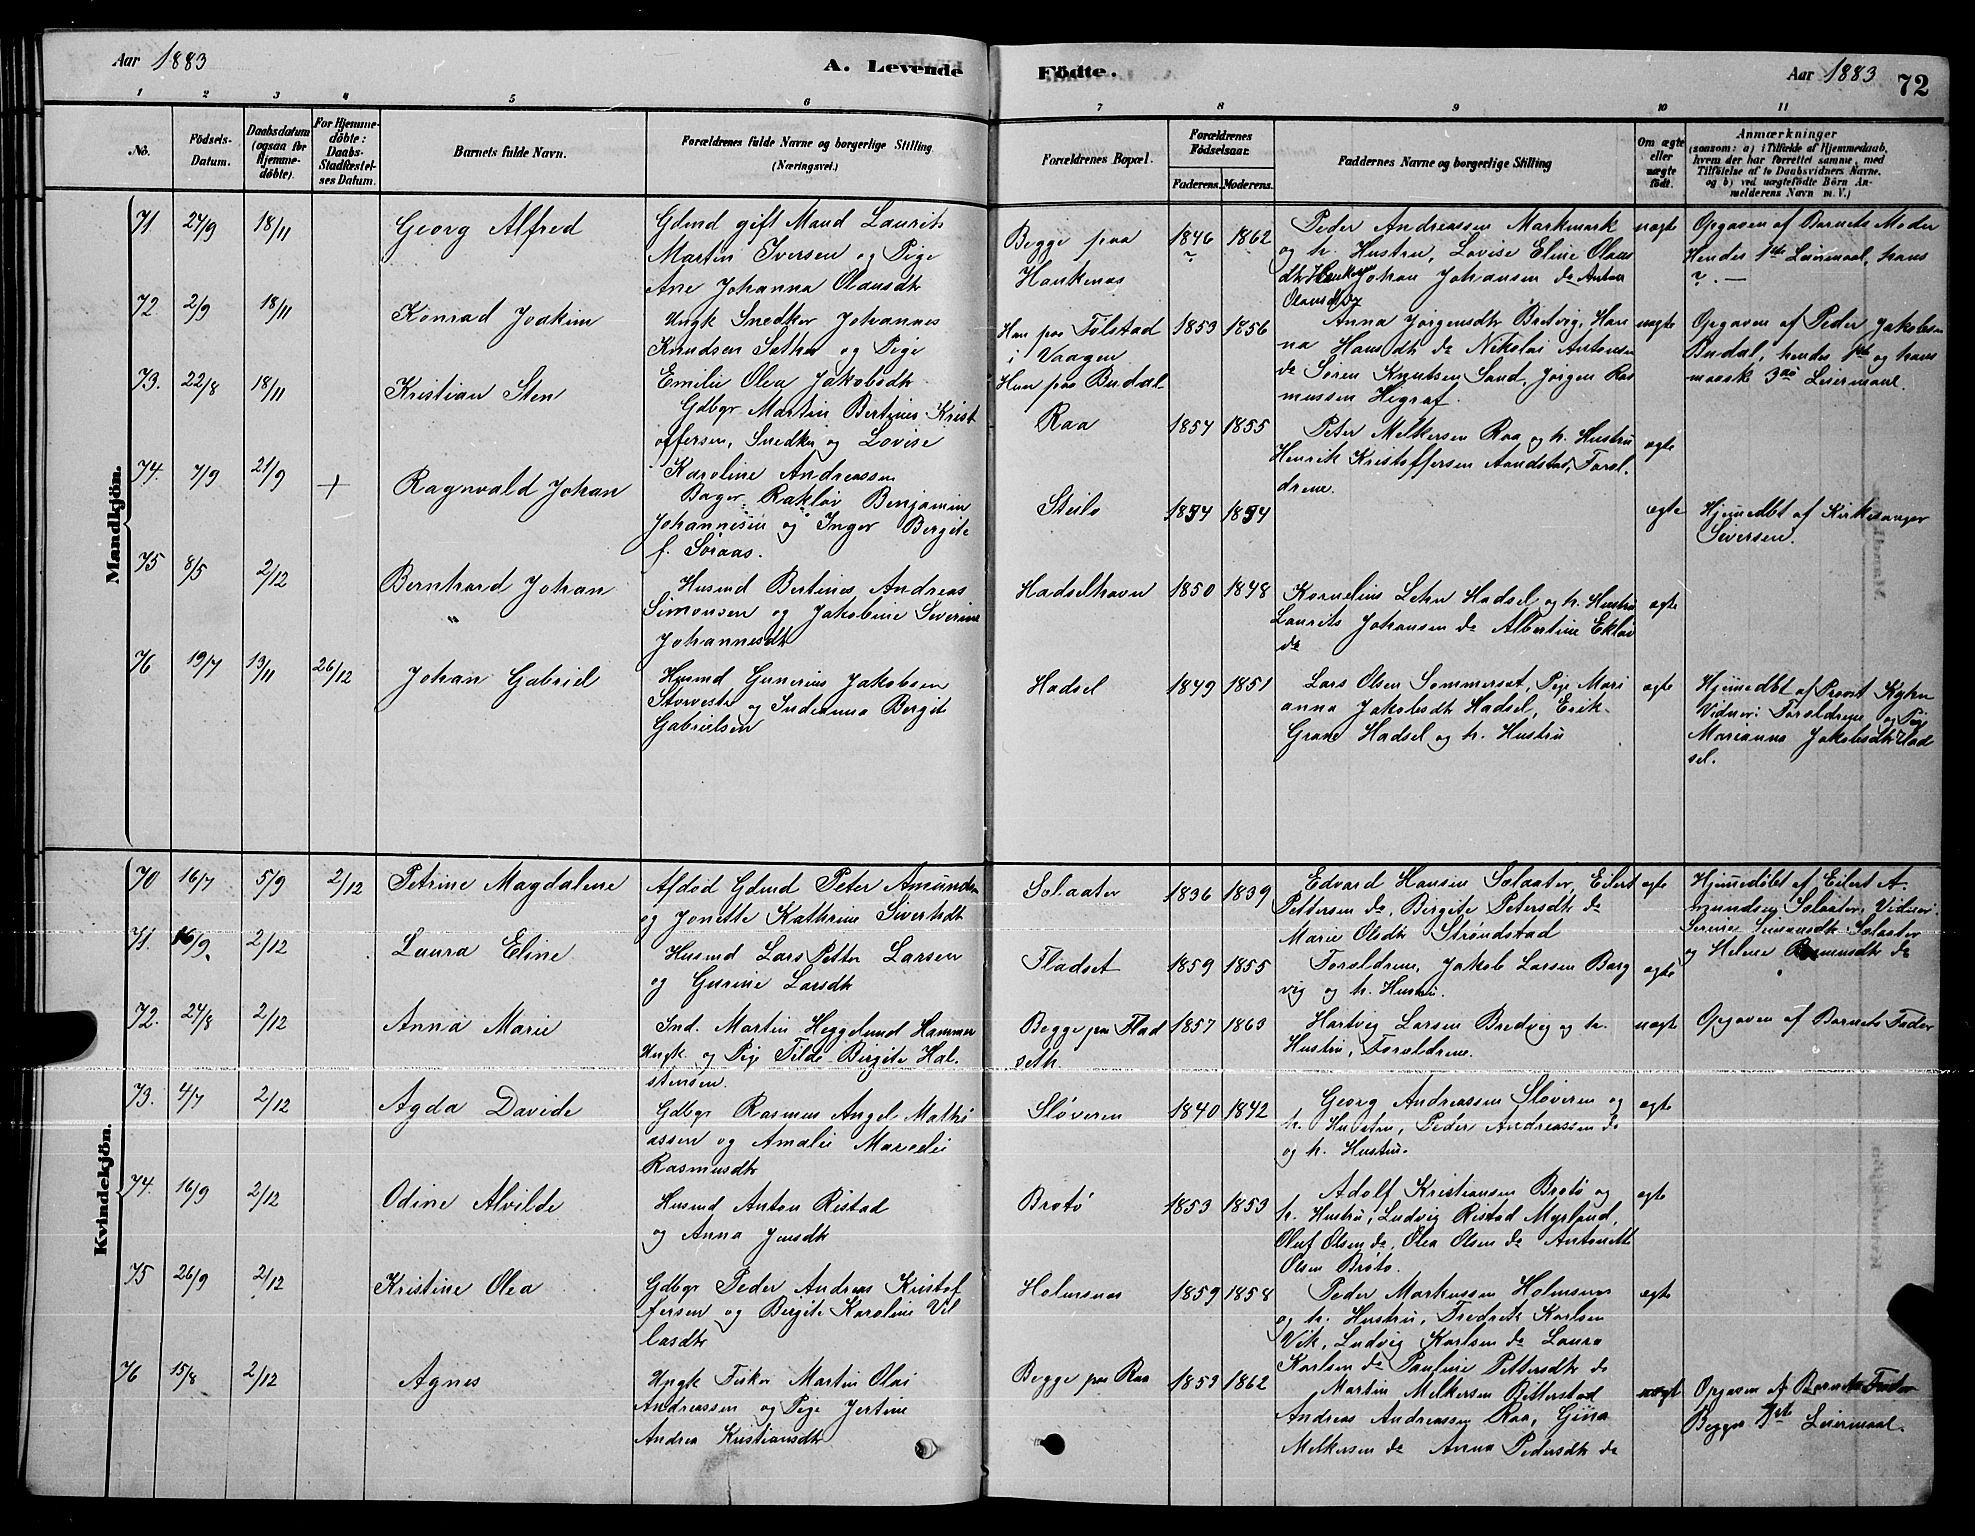 Aar 1883
A. Levende
Födte.
Aar 1883
72
1 2 3 4 5 6 7 8 9 10 11
No.
Födsels-Datum.
Daabsdatum (ogsaa for Hjemmedöbte).
For Hjemmedöbte: Daabs-Stadfæstelses Datum.
Barnets fulde Navn.
Forældrenes fulde Navne og borgerlige Stilling (Næringsvei.)
Forældrenes Bopæl.
Forældrenes Födselsaar.
Faderens. Moderens.
Faddernes Navne og borgerlige Stilling
Om ægte eller uægte födt.
Anmærkninger
(saasom: a) i Tilfælde af Hjemmedaab,
hvem der har forrettet samme, med
Tilföielse af to Daabsvidners Navne.
og b) ved uægtefödte Börn Anmelderens Navn m. V.)
Mandkjön.
71 24/9 18/11
Georg Alfred
Gdmd gift Mand Laurits
Martin Iversen og Pige
Ane Johanna Olausdtr
Begge paa
Haukenæs
1846 1862
Peder Andreassen Markmark
og h. Hustru, Lovise Eline Olaus
dtr Haukenæs Johan Johansen do Anton
Olausdtr
uægte
Opgaven af Barnets Moder
Hendes 1ste Leiermaal, hans
? . —
72 2/9 18/11
Konrad Joakim
Ungk Snedker Johannes
Knudsen Sæther og Pige
Emilie Olea Jakobsdtr
Han paa Folstad
i Vaagen
Hun paa Budal
1853 1856
Anna Jörgensdtr Bretvig, Han
na Hansdtr do Nikolai Antonsen
do Sören Knutsen Sand, Jörgen Ras
mussen Hegraf.
uægte
Opgaven af Peder Jakobsen
Budal, hendes 1ste og hans
maask 3die Leiermaal.
73. 22/8 18/11
Kristian Sten
Gdbgr Martin Bertinus Krist
offersen, Snedker og Lovise
Karoline Andreassen
Raa
1854 1855
Peter Melkersen Raa og h. Hustru
Henrik Kristoffersen Aandstad, Foræl-
drene.
ægte
74. 7/9 21/9 +
Ragnvald Johan
Bager Rakløv Benjamin
Johannesen og Inger Bergite
f. Soraas.
Steilo
1854 1854
ægte
Hjemmedbt af Kirkesanger
Sivertsen.
75 8/5 2/12
Bernhard Johan
"
Husmd Bertinus Andreas
Simonsen og Jakobine Severine
Johannesdtr
Hadselhavn
1850 1848
Kornelius Lehn Hadsel og h. Hustru
Laurits Johansen do Albertine Eklöv
do
ægte
76 19/7 13/11 26/12
Johan Gabriel
Husmd Gunerius Jakobsen
Storvestre og Indeanna Bergit
Gabrielsen
Hadsel
1849 1851
Lars Olsen Sommerset, Pige Mari
anna Jakobsdtr Hadsel, Erik
Grane Hadsel og h. Hustru
ægte
Hjemmedbt af Provst Kyhn
Vidner: Forældrene og Pige
Marianna Jakobsdtr Had
sel.
Kvindekjön.
70 16/7 5/9 2/12
Petrine Magdalene
Afdød Gdmd Peter Amundsen
og Jonette Kathrine Sivertsdtr
Solaater
1836 1839
Edvard Hansen Solaater, Eilert
Pettersen do, Birgite Petersdtr do
Marie Olsdtr Strøndstad
ægte
Hjemmedöbt af Eilert A-
mundsen Solaater, Vidner:
Serine Simonsdtr Solaater
og Helene Rasmusdtr do
71. 16/9 2/12
Laura Eline
Husmd Lars Petter Larsen
og Gurine Larsdtr
Fladset
1859 1855
Forældrene, Jakob Larsen Barg
vig og h. Hustru.
ægte
72. 24/8 2/12
Anna Marie
Ind. Martin Heggelund Hammer
Ungk. og Pige Tilde Birgite Hal-
stensen.
Begge paa Flad
seth
1857 1863
Hartvig Larsen Bredvig og h.
Hustru, Forældrene.
uægte
Opgaven af Barnets Fader
73. 4/7 2/12
Agda Davide
Gdbgr Rasmus Angel Mathi
assen og Amalie Marselie
Rasmusdtr
Sløveren
1840 1842
Georg Andreassen Sløveren og
h. Hustru, Peder Andreassen do
og h. Hustru.
ægte
74. 16/9 2/12
Odine Alvilde
Husmd Anton Ristad
og Anna Jensdtr
Brotö
1853 1853
Adolf Kristiansen Brotö og
h. Hustru, Ludvig Ristad Myrland,
Oluf Olsen do, Olea Olsen do Antonette
Olsen Brotö.
ægte
75 26/9 2/12
Kristine Olea
Gdbgr Peder Andreas Kristof
fersen og Bergite Karoline Vil
lasdtr
Holmsnæs
1859 1858
Peder Markussen Holmsnæs
og h. Hustru, Fredrik Karlsen
Vik, Ludvig Karlsen do Laura
Karlsen do Pauline Pettersdtr do
ægte
76 15/8 2/12
Agnes
Ungk Fisker Martin Olai
Andreassen og Pige Jertine
Andrea Kristiansdtr
Begge paa Raa
1859 1862
Martin Melkersen Bitterstad
Andreas Andreassen Raa, Gina
Melkersen do Anna Pedersdtr do
uægt
Opgaven af Barnets Fader
Begges 1ste Leiermaal.